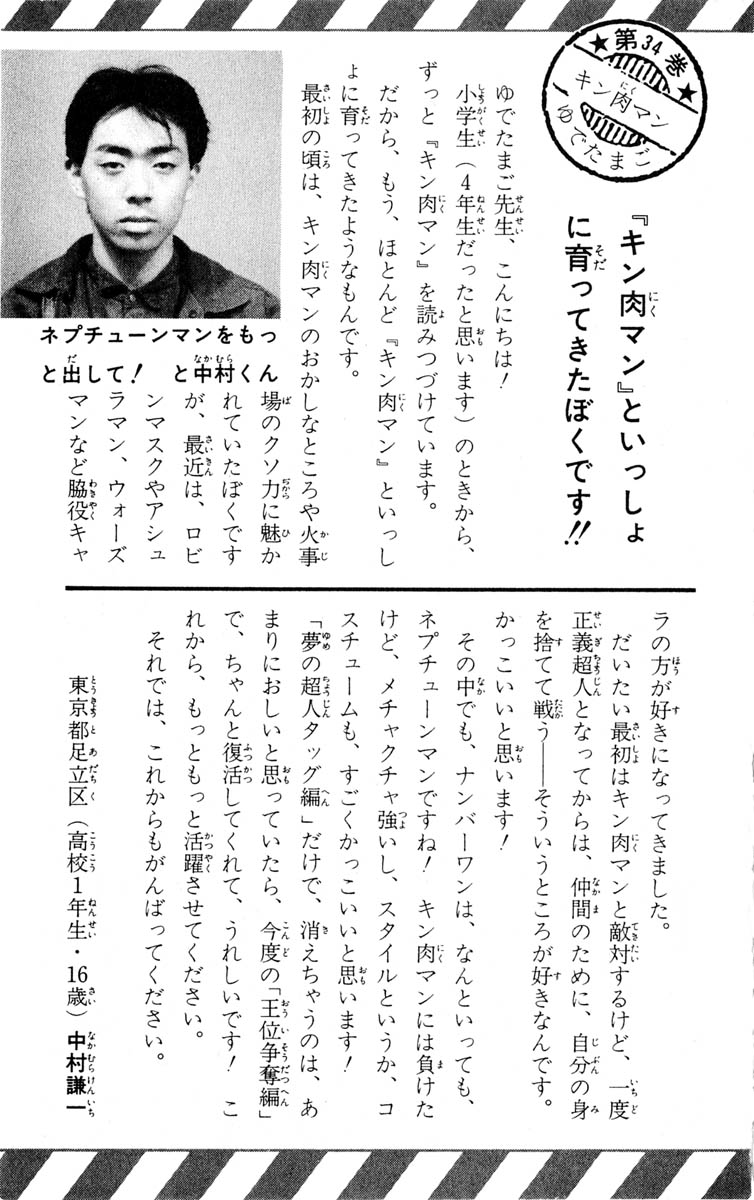 ★第34巻★
キン肉マン
ゆでたまご
『キン肉マン』といっしょ
に育ってきたぼくです!!
ゆでたまご先生、こんにちは！
小学生（4年生だったと思います）のときから、
ずっと『キン肉マン』を読みつづけています。
だから、もう、ほとんど『キン肉マン』といっし
ょに育ってきたようなもんです。
最初の頃は、キン肉マンのおかしなところや火事
場のクソ力に魅か
れていたぼくです
が、最近は、ロビ
ンマスクやアシュ
ラマン、ウォーズ
マンなど脇役キャ
ネプチューンマンをもっ
と出して！　と中村くん
ラの方が好きになってきました。
だいたい最初はキン肉マンと敵対するけど、一度
正義超人となってからは、仲間のために、自分の身
を捨てて戦う――そういうところが好きなんです。
かっこいいと思います！
その中でも、ナンバーワンは、なんといっても、
ネプチューンマンですね！　キン肉マンには負けた
けど、メチャクチャ強いし、スタイルというか、コ
スチュームも、すごくかっこいいと思います！
「夢の超人タッグ編」だけで、消えちゃうのは、あ
まりにおしいと思っていたら、今度の「王位争奪編」
で、ちゃんと復活してくれて、うれしいです！　こ
れから、もっともっと活躍させてください。
それでは、これからもがんばってください。
東京都足立区（高校1年生・16歳）中村謙一